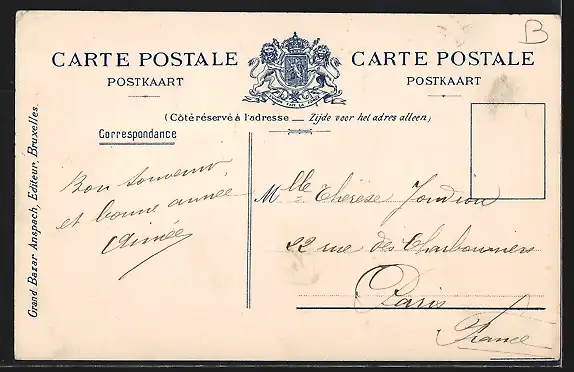 B
CARTE POSTALE
POSTKAART
CARTE POSTALE
POSTKAART
(Côté réservé à l'adresse — Zijde voor het adres alleen)
Correspondance
Bon souvenir
et bonne année
Aimée
Mlle Thérèse
22 rue des Charbonniers
Paris
France
Grand Bazar Anspach, Editeur, Bruxelles.